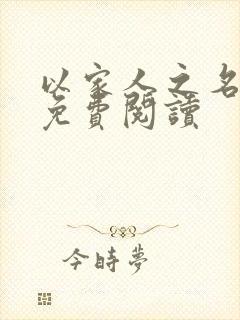 以家人之名
免費閱讀
今時夢